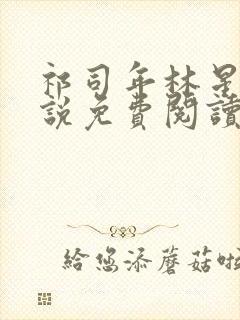 祁司年林星
說免費閱讀
給您添蘑菇啦